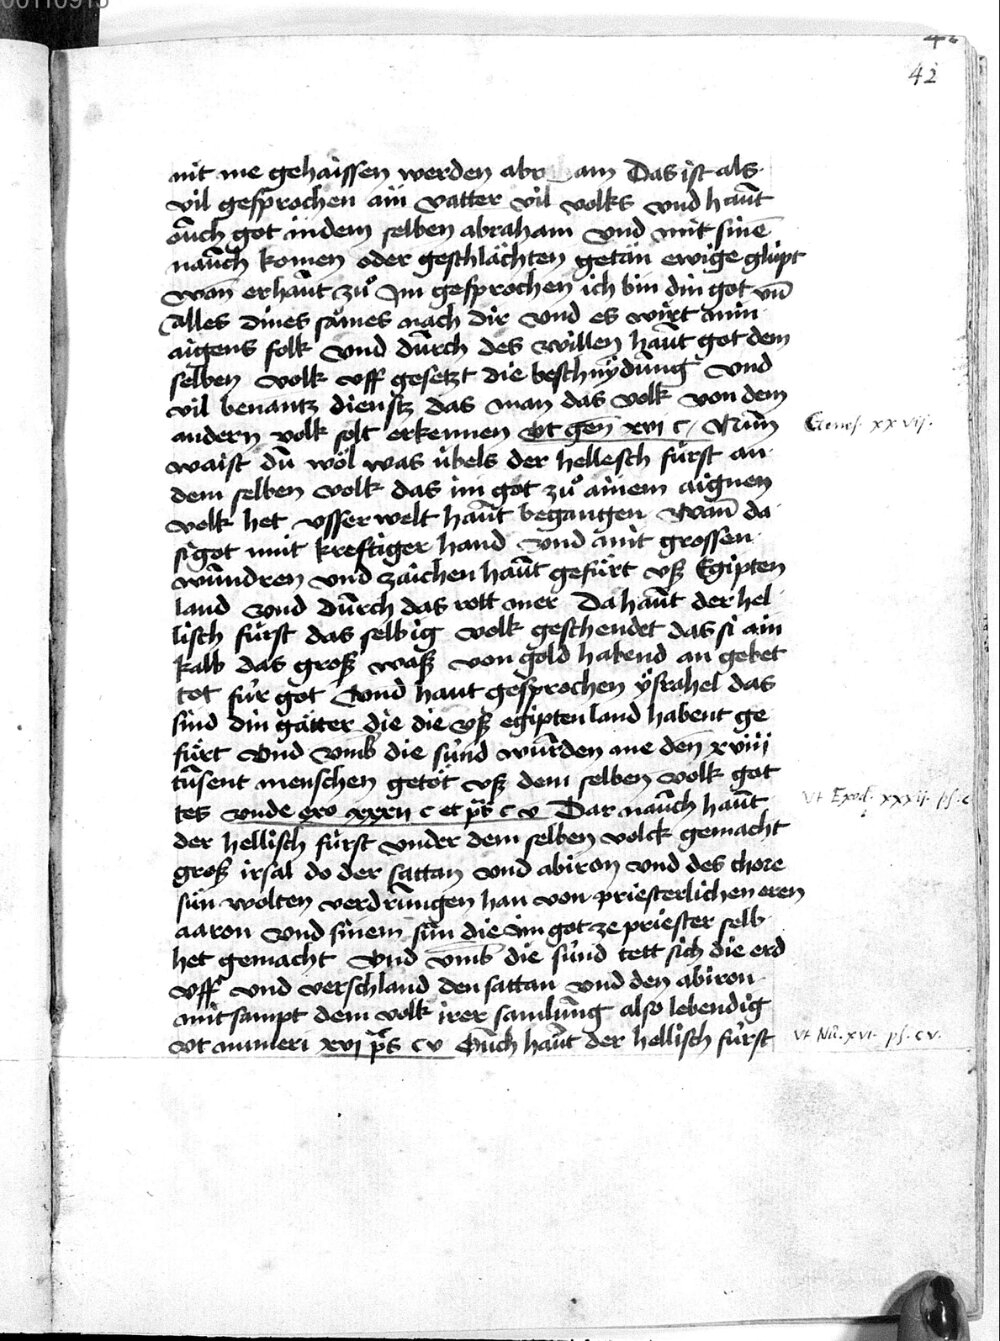 42
nit me gehaissen werden abra am Das ist als
vil gesprochen ain vatter vil volks vnd haut
ouch got in dem selben abraham vnd mit sinē
nauch komen oder geschlächten getan ewige glüpt
wan er haut zuͦ im gesprochen ich bin din got vn̄
alles dines sames nach dir vnd es wirt min
aigens folk vnd durch des willen haut got dem
selben volk vff gesetzt die beschnÿdung vnd
vil benantz dienstz das man das volk von dem
andern volk solt erkennen Vt gen xvi c Nun
Genes. xxvij.
waist du wol was übels der hellesch fürst an
dem selben volk das im got zuͦ ainem aignen
volk het vsserwelt haut begangen Wan da
si got mit kreftiger hand vnd mit grossen
wundren vnd zaichen haut gefürt vsz Egipten
land vnd durch das rott mer Da haut der hel
lisch fürst das selbig volk geschendet das si ain
kalb das grosz wasz von gold habend an gebet
tot für got Vnd haut gesprochen ÿsrahel das
sind din gätter die die vsz egipten land habent ge
fürt Vnd vmb die sünd wurden me den xviii
tusent menschen getöt vsz dem selben volk got
tes vnde exo xxxii c et ps c v Dar nauch haut
Vt Exod. xxxij. ps. c
der hellisch fürst vnder dem selben volck gemacht
grosz irsal do der sattan vnd abiron vnd des chore
sün wolten verdrungen han von priesterlichen eren
aaron vnd sinem sün die im got ze priester selb
het gemacht Vnd vmb die sünd tett sich die erd
vff vnd verschland den sattan vnd den abiron
mit sampt dem volk irer samlung also lebendig
vt numeri xvi ps c v Ouch haut der hellisch fürst
Vt Nu. xvi. ps. c v.